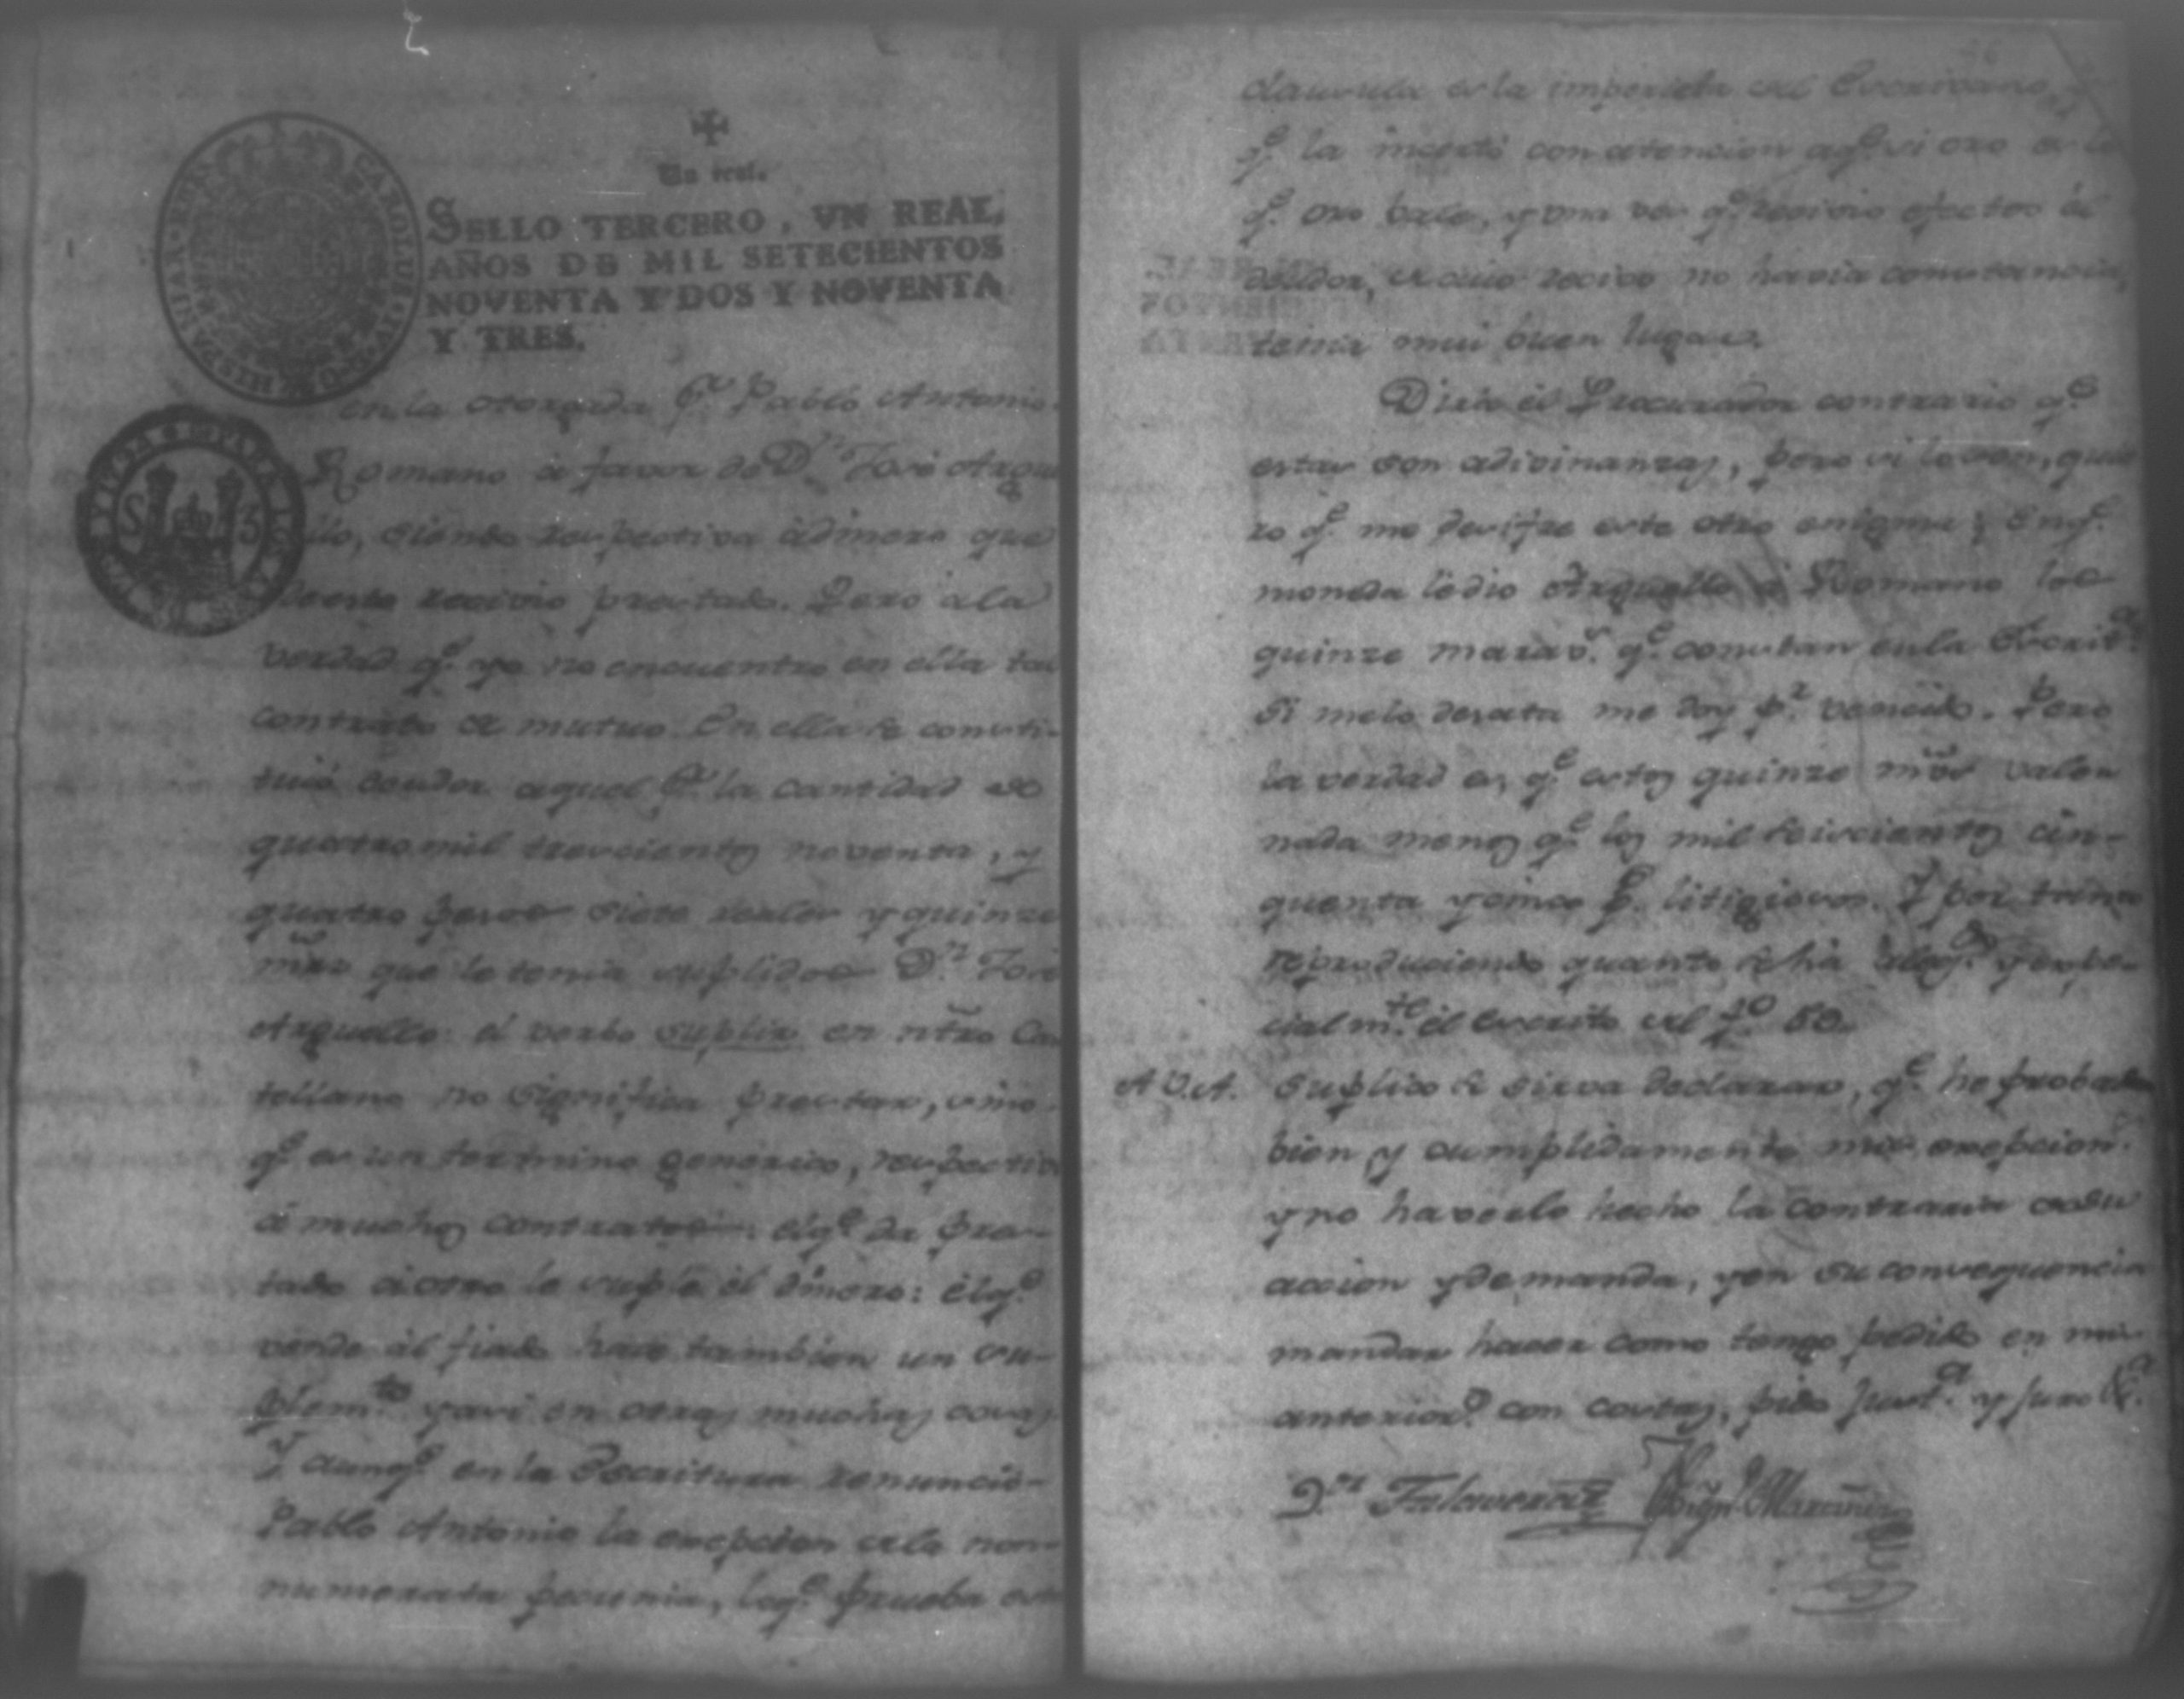 Un real.
SELLO TERCERO, VN REAL,
AÑOS DE MIL SETECIENTOS
NOVENTA Y DOS Y NOVENTA
Y TRES.
CAROLUS IV
HISPANIAR REX
S 3
en la otorgada pr. Pablo Antonio
Romano á favor de Dn. José Argue
llo, siendo respectiva á dinero que
recivio prestado. Pero á la
verdad qe. yo no encuentro en ella tal
contrato de mutuo. En ella se consti-
tuió deudor aquel pr. la cantidad de
quatro mil trescientos noventa, y
quatro pesos siete reales y quinze
mrs que le tenia suplidos Dn. José
Arguello: el verbo suplir en ntro Cas
tellano no significa prestar, sino
qe. es un termino generico, respectivo
á muchos contratos: el qe. da pres-
tado á otro le suple el dinero: el qe.
vende al fiado hace tambien un su-
plemto. y asi en otras muchas cosas
Y aunqe. en la Escritura renunció
Pablo Antonio la excepcion de la non
numerata pecunia, qe. prueba esta
clausula es la impericia del Escrivano,
qe. la insertó con atencion aqe. si oro es lo
qe. oro vale, y una vez qe. recivio efectos el
deudor, de cuio recivo no havia constancia,
tenia mui buen lugar.
Dirá el Procurador contrario qe.
estas son adivinanzas, pero si lo son, quie
ro qe. me descifre este otro enigma; En qe.
moneda le dio Arguello á Romano los
quinze maravs. qe. constan en la Escrita.
Si me lo desata me doy pr. vencido. Pero
la verdad es, qe. estos quinze mrs valen
nada menos qe. los mil seiscientos cin-
quenta y cinco ps. litigiosos. Y por tanto
reproduciendo quanto se ha alegdo. y espe-
cialmte. el escrito del fo. 50.
A V.A. suplico se sirva declarar, qe. he probado
bien y cumplidamente mis excepcions.
y no haverlo hecho la contraria de su
accion y demanda, y en su consequencia
mandar hacer como tengo pedido en mis
anteriors. con costas, pido Justa. y juro &a.
Dor. Talavera